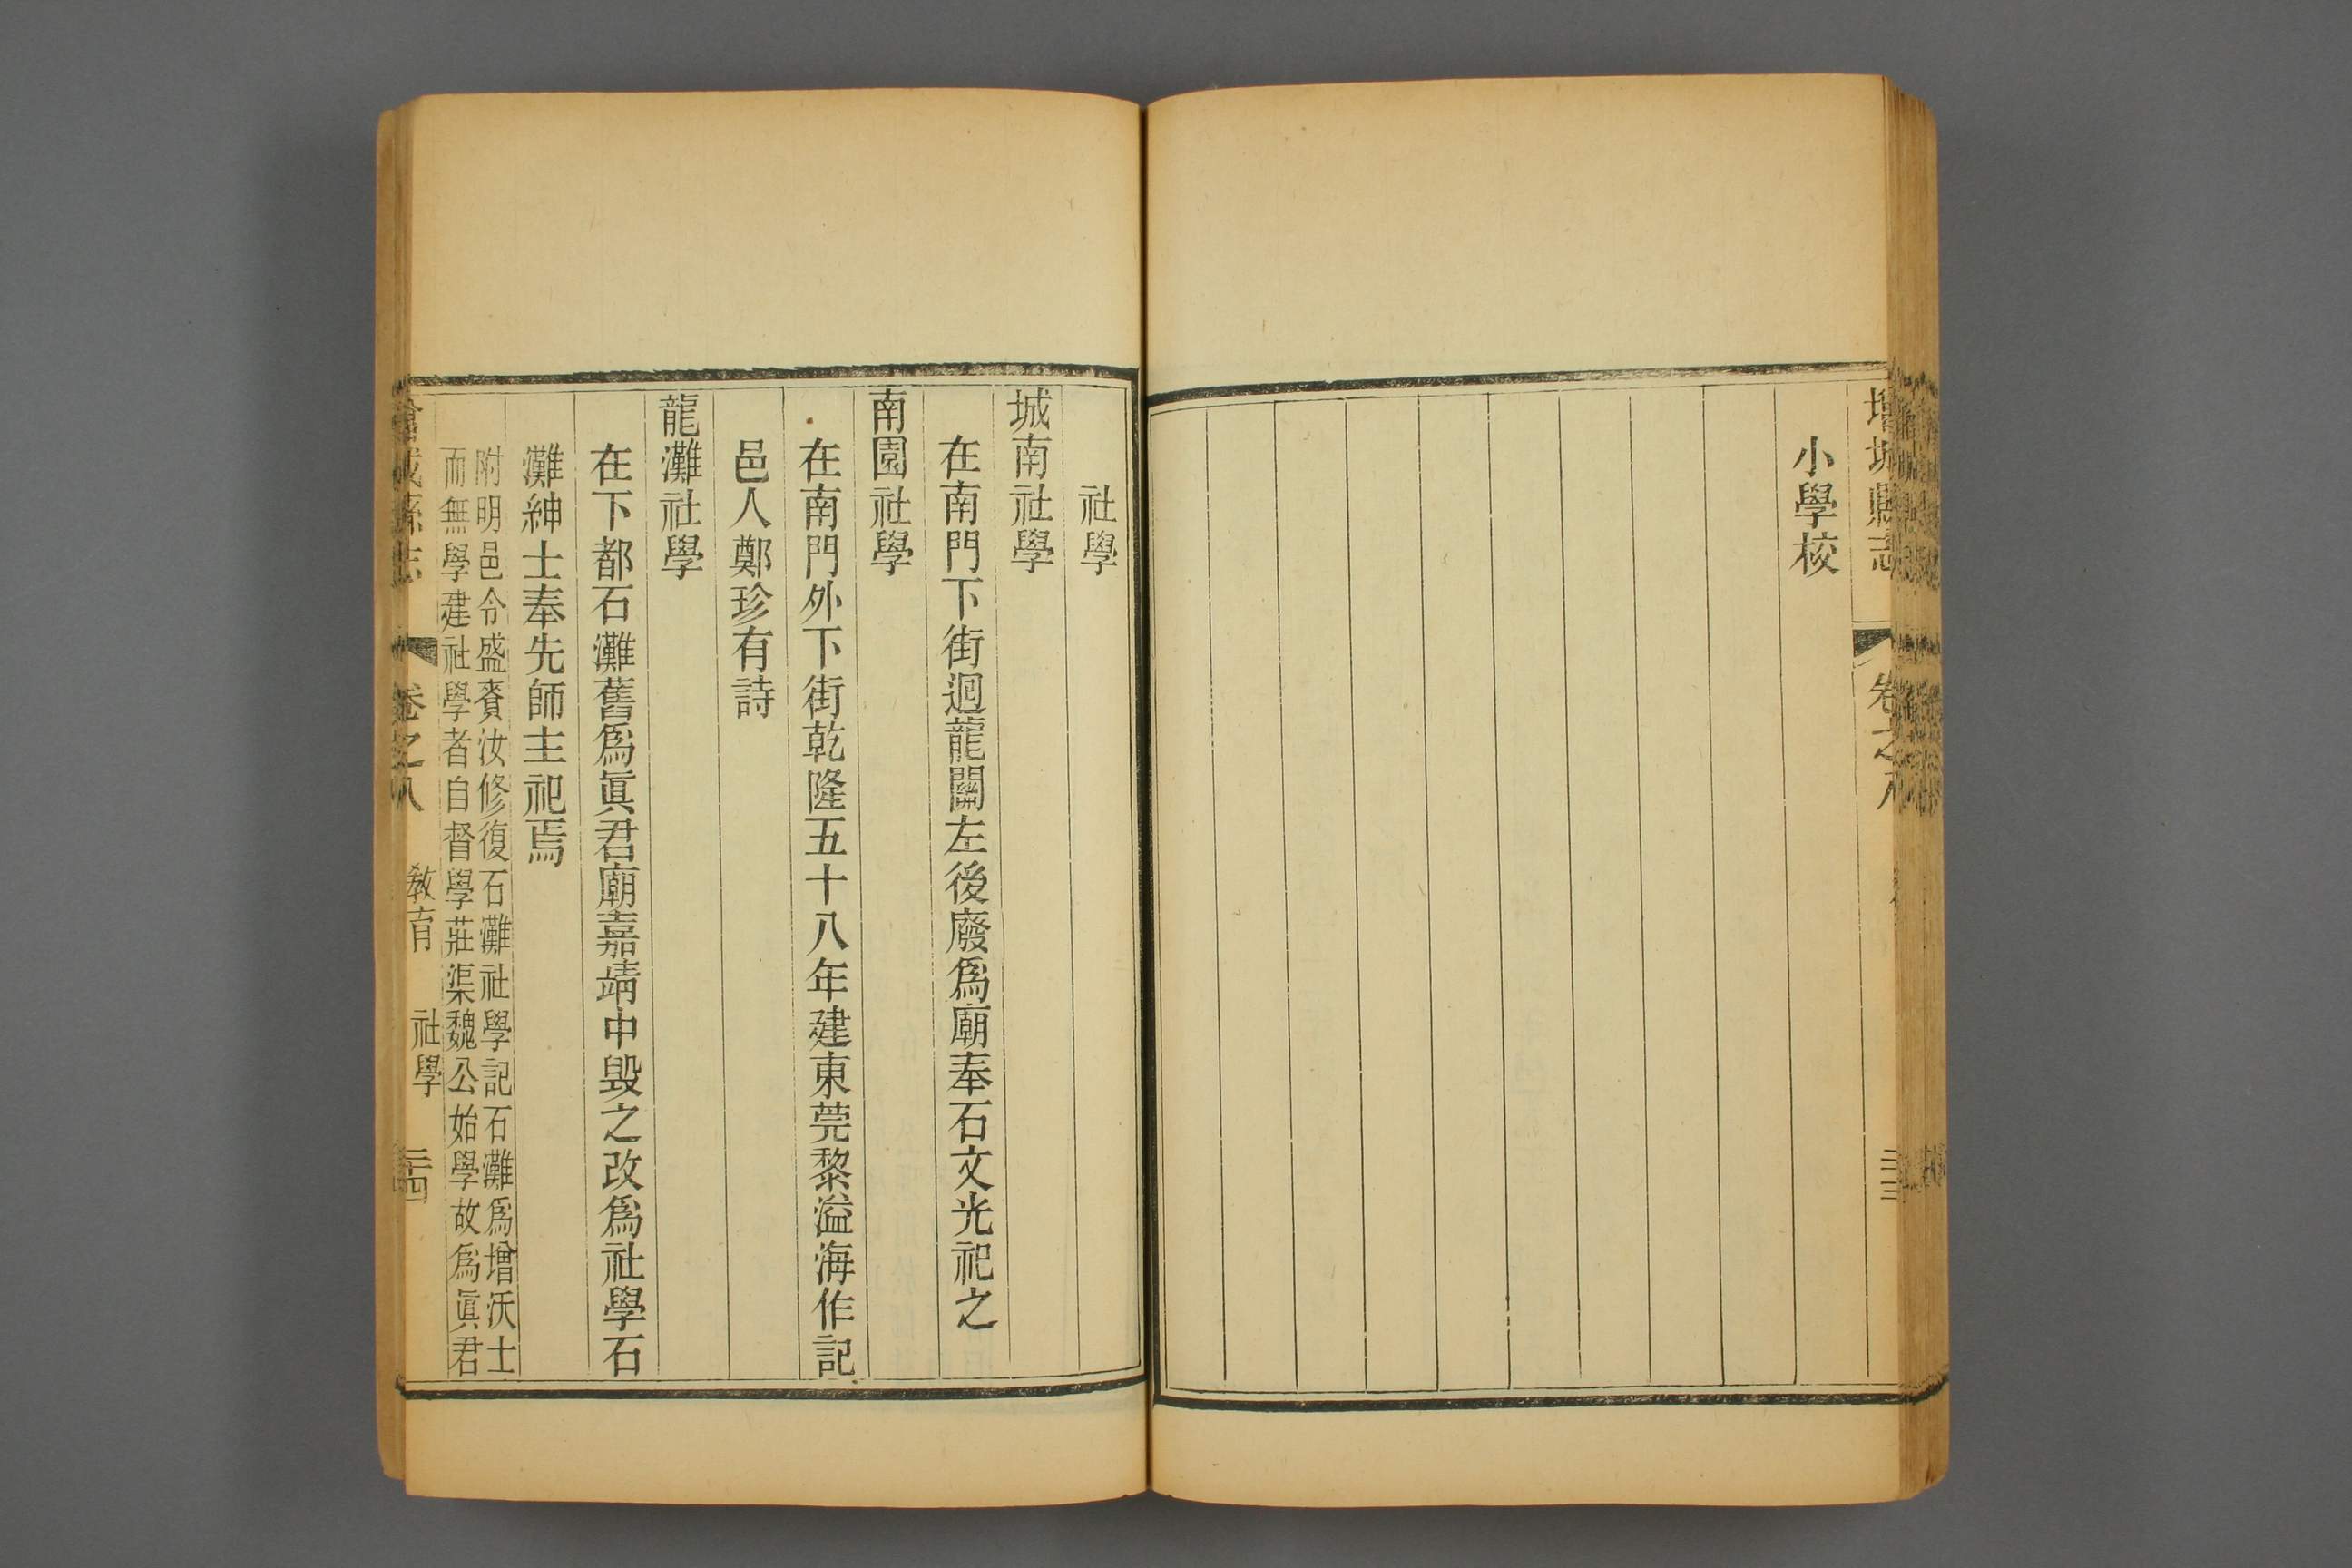 增城縣志
卷之八
二十三
小學校
社學
城南社學
在南門下街迴龍關左後廢爲廟奉石文光祀之
南園社學
在南門外下街乾隆五十八年建東莞黎溢海作記
邑人鄭珍有詩
龍灘社學
在下都石灘舊爲眞君廟嘉靖中毀之改爲社學石
灘紳士奉先師主祀焉
附明邑令盛賚汝修復石灘社學記石灘爲增沃士
而無學建社學者自督學莊渠魏公始學故爲眞君
增城縣志
卷之八
教育
社學
二十四